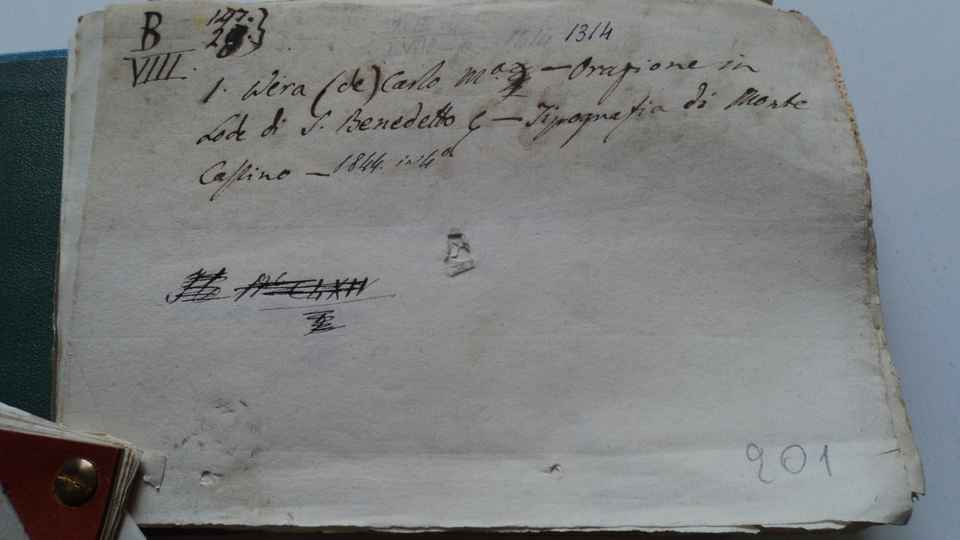 B 147.}
VIII. 2 }
1314
1. Wera (de) Carlo M.a — Orazione in
Lode di S. Benedetto — Tipografia di Monte
Cassino — 1844. in 4°
201